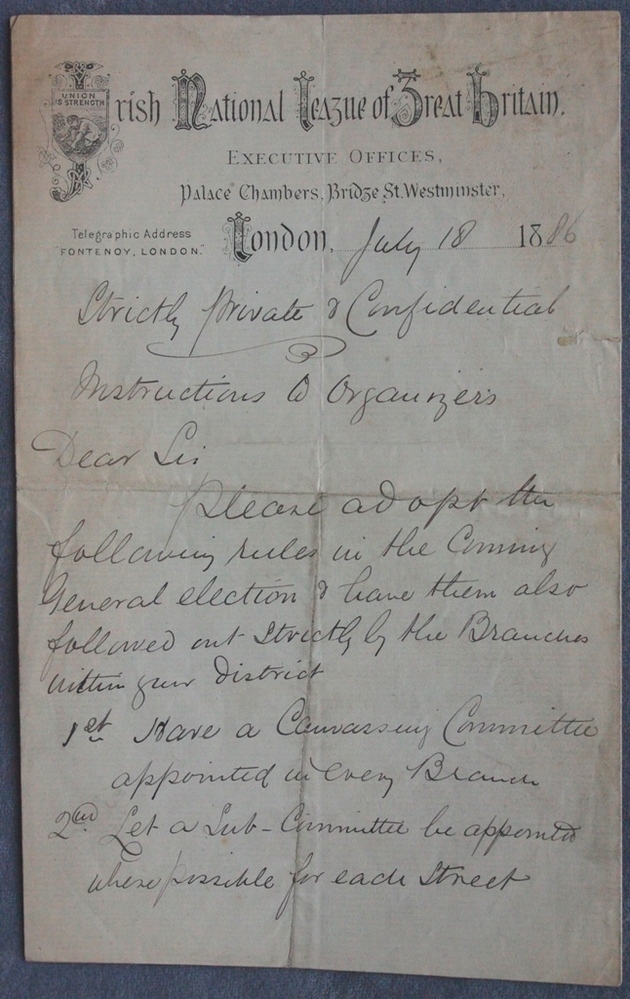 UNION
IS STRENGTH
Irish National League of Great Britain.
EXECUTIVE OFFICES,
Palace Chambers, Bridge St. Westminster,
Telegraphic Address
"FONTENOY, LONDON."
London, July 18 1886
Strictly private & Confidential
Instructions to Organizers
Dear Sir
Please adopt the
following rules in the Coming
General election & have them also
followed out Strictly by the Branches
within your District
1st Have a Canvassing Committee
appointed in every Branch
2nd Let a Sub-Committee be appointed
where possible for each Street